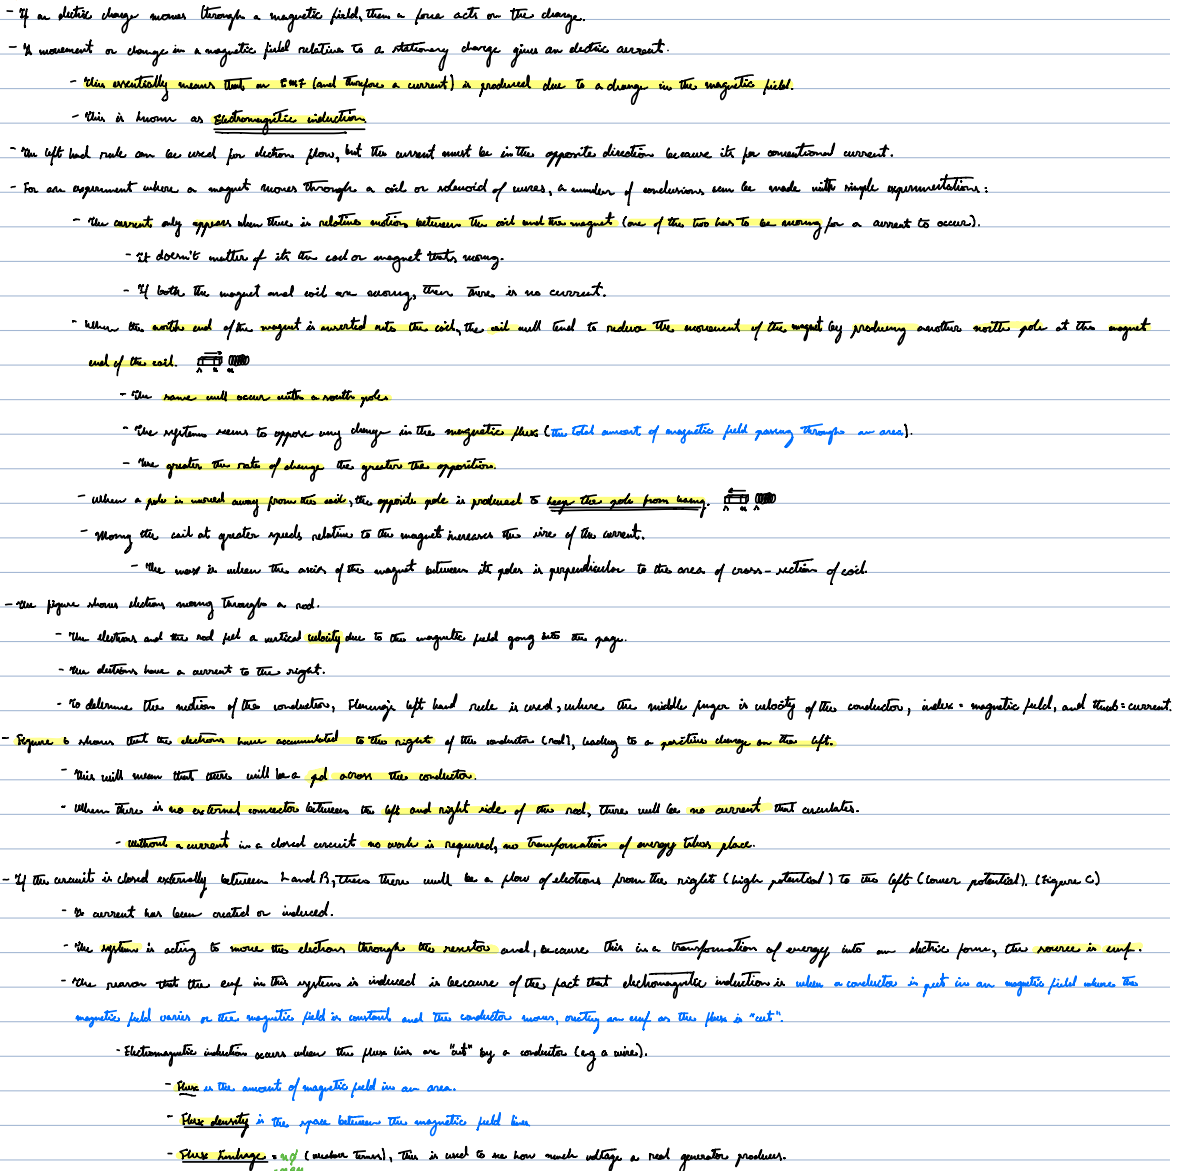 - If an electric charge moves through a magnetic field, then a force acts on the charge.
- A movement or change in a magnetic field relative to a stationary charge gives an electric current.
- This essentially means that an EMF (and therefore a current) is produced due to a change in the magnetic field.
- This is known as Electromagnetic induction.
- The left hand rule can be used for electron flow, but the current must be in the opposite direction because its for conventional current.
- For an experiment where a magnet moves through a coil or solenoid of wires, a number of conclusions can be made with simple experimentations:
- The current only appears when there is relative motion between the coil and the magnet (one of the two has to be moving for a current to occur).
- It doesn't matter if its the coil or magnet thats moving.
- If both the magnet and coil are moving, then there is no current.
- When the north end of the magnet is inserted into the coil, the coil will tend to reduce the movement of the magnet by producing another north pole at the magnet
end of the coil.
- The same will occur with a south pole.
- The systems seems to oppose any change in the magnetic flux (the total amount of magnetic field passing through an area).
- The greater the rate of change the greater the opposition.
- When a pole is moved away from the coil, the opposite pole is produced to keep the pole from leaving.
- Moving the coil at greater speeds relative to the magnet increases the size of the current.
- The max is when the axis of the magnet between its poles is perpendicular to the area of cross-section of coil.
- The figure shows electrons moving through a rod.
- The electrons and the rod feel a vertical velocity due to the magnetic field going into the page.
- The electrons have a current to the right.
- To determine the motion of the conductor, Flemings left hand rule is used, where the middle finger is velocity of the conductor, index = magnetic field, and thumb = current.
- Figure b shows that the electrons have accumulated to the right of the conductor (rod), leading to a positive charge on the left.
- This will mean that there will be a pd across the conductor.
- When there is no external connector between the left and right side of the rod, there will be no current that circulates.
- Without a current in a closed circuit no work is required, no transformation of energy takes place.
- If the circuit is closed externally between L and R, then there will be a flow of electrons from the right (high potential) to the left (lower potential). (Figure C)
- A current has been created or induced.
- The system is acting to move the electrons through the resistor and, because this is a transformation of energy into an electric form, the source is emf.
- The reason that the emf in this system is induced is because of the fact that electromagnetic induction is when a conductor is put in an magnetic field where the
magnetic field varies or the magnetic field is constant and the conductor moves, creating an emf as the flux is "cut".
- Electromagnetic induction occurs when the flux lines are "cut" by a conductor (e.g a wire).
- Flux is the amount of magnetic field in an area.
- Flux density is the space between the magnetic field lines
- Flux linkage = nφ (number turns), this is used to see how much voltage a real generator produces.